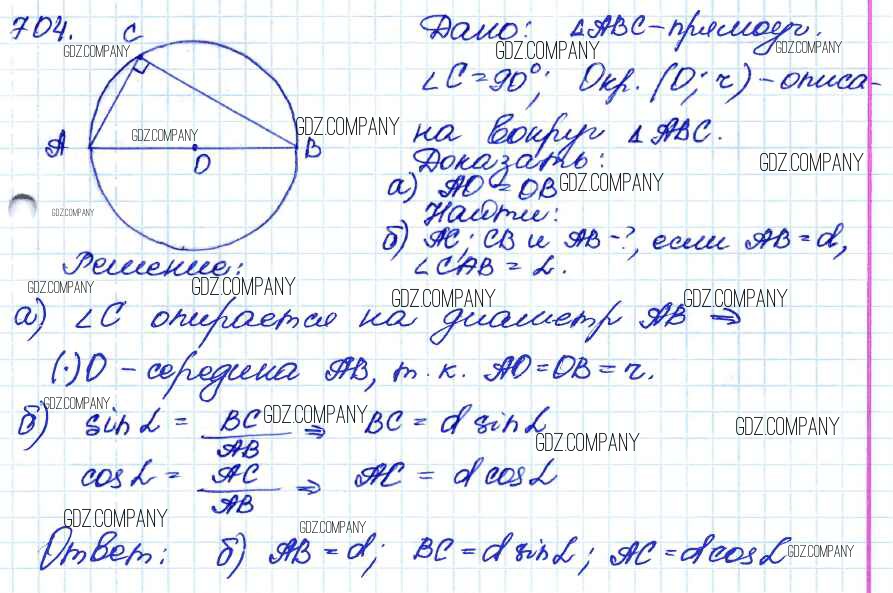 704.
C
A
O
B
Дано: △ABC – прямоуг.
∠C = 90°; Окр. (O; r) – описа-
на вокруг △ABC.
Доказать:
а) AO = OB
Найти:
б) AC; CB и AB – ?, если AB = d,
∠CAB = α.
Решение:
а) ∠C опирается на диаметр AB ⇒
(·)O – середина AB, т.к. AO = OB = r.
б) sin α = BC/AB ⇒ BC = d sin α
cos α = AC/AB ⇒ AC = d cos α
Ответ: б) AB = d; BC = d sin α; AC = d cos α
GDZ.COMPANY
GDZ.COMPANY
GDZ.COMPANY
GDZ.COMPANY
GDZ.COMPANY
GDZ.COMPANY
GDZ.COMPANY
GDZ.COMPANY
GDZ.COMPANY
GDZ.COMPANY
GDZ.COMPANY
GDZ.COMPANY
GDZ.COMPANY
GDZ.COMPANY
GDZ.COMPANY
GDZ.COMPANY
GDZ.COMPANY
GDZ.COMPANY